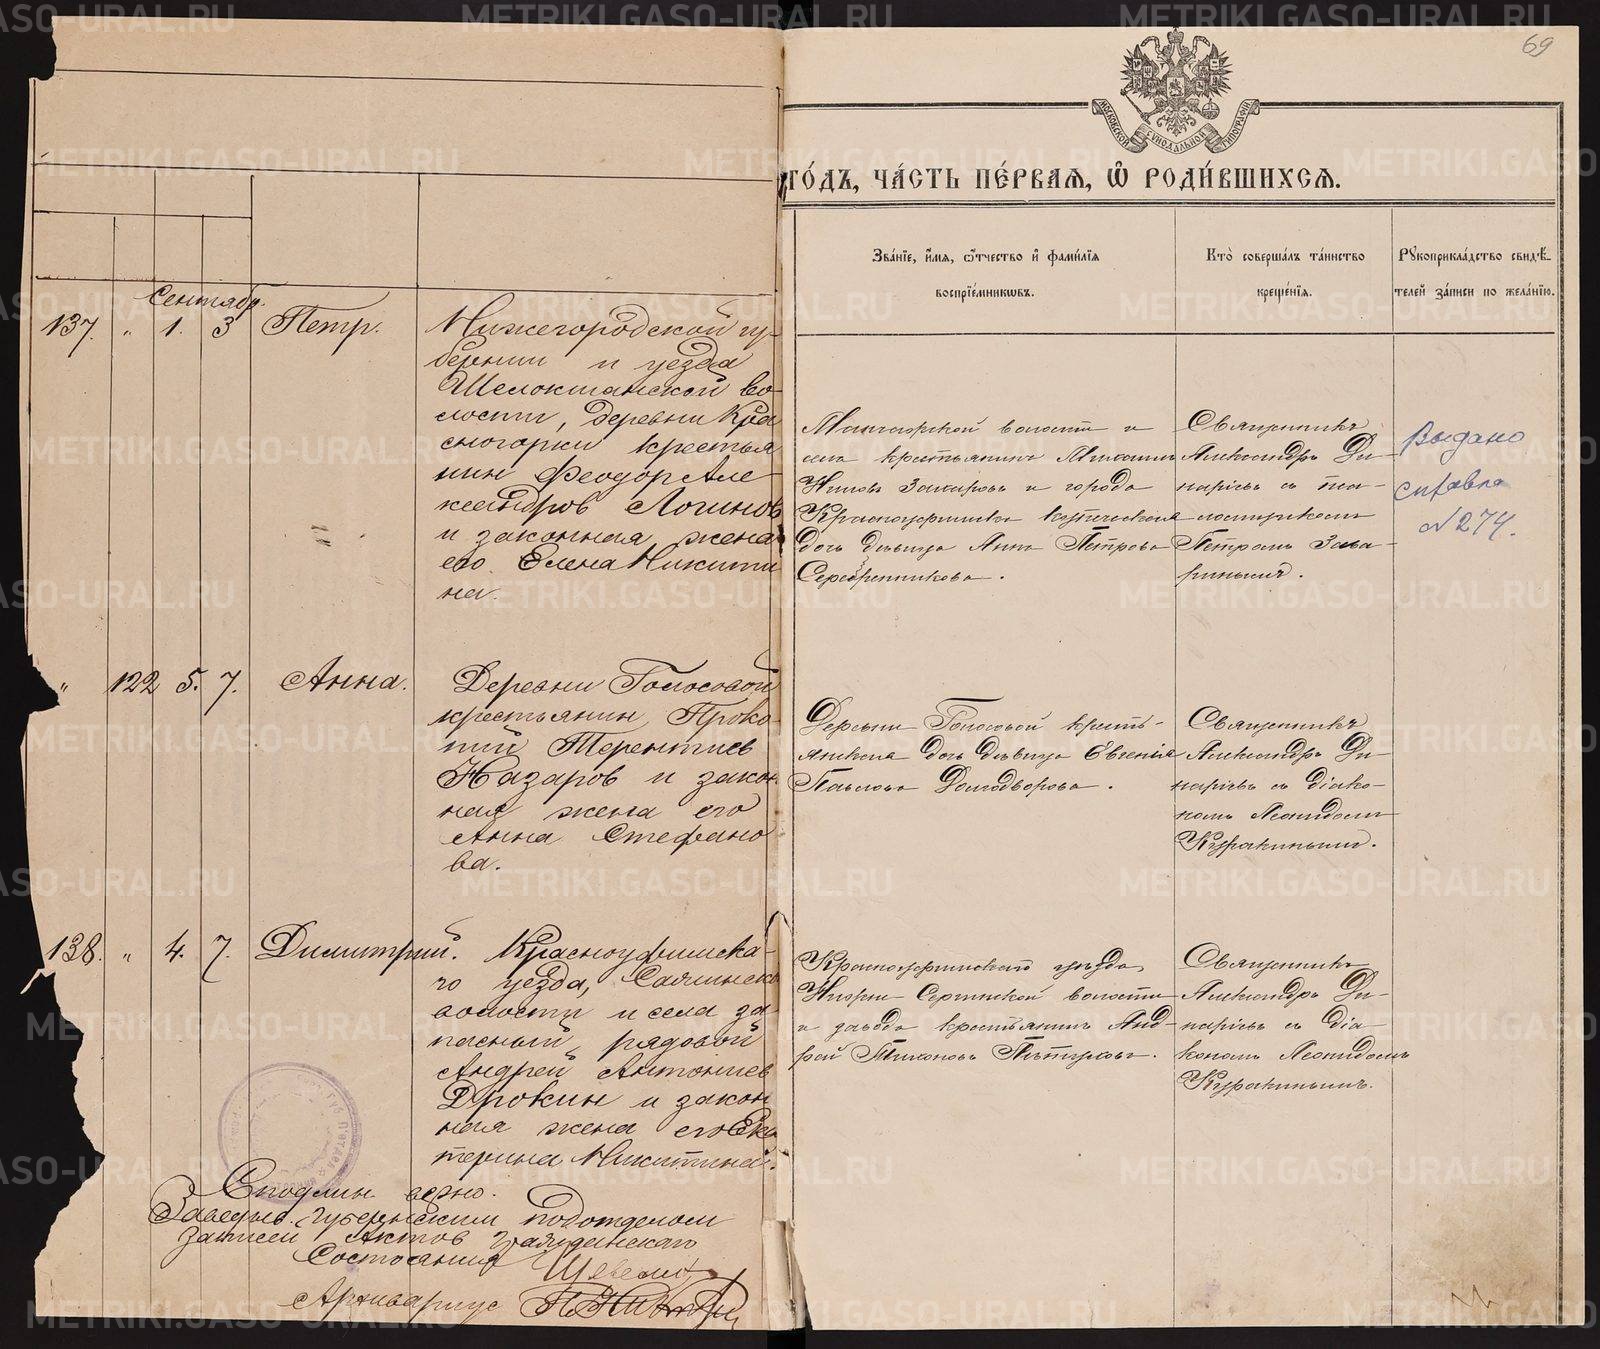 69
МОСКОВСКОЙ СѴНОДАЛЬНОЙ ТИПОГРАФІИ
ГО́ДЪ, ЧА́СТЬ ПЕ́РВАѦ, Ѡ҆ РОДИ́ВШИХСѦ.
Зва́нїе, и҆́мѧ, ѻ҆́тчество и҆ фами́лїѧ
воспрїе́мникѡвъ.
Кто̀ соверша́лъ та́инство
креще́нїѧ.
Рꙋкоприкла́дство свидѣ́-
телей за́писи по жела́нїю.
Сентябр.
137. " 1. 3 Петр.
Нижегородской гу-
бернии и уезда
Шелокшанской во-
лости, деревни Кра
сногорки крестья
нин Феодор Але
ксандров Логинов
и законная жена
его Елена Никити
на.
Манчажской волости и
села крестьянинъ
Захаровъ и города
Красноуфимска купеческая
дочь девица Анна Петрова
Серебренникова.
Священникъ
Александръ Ди-
нарiевъ с пса-
ломщикомъ
Петромъ
Выдано
справка
N 274.
" 122 5. 7. Анна.
Деревни Голосовой
крестьянин Проко
пий Терентиев
Назаров и закон
ная жена его
Анна Стефано
ва.
Деревни Голосовой кресть-
янская дочь девица Евгенiя
Павлова Долгодворова.
Священникъ
Александръ Ди-
нарiевъ съ дiако-
номъ Леонидомъ
Куракинымъ.
138. " 4. 7. Димитрий.
Красноуфимска-
го уезда, Сажинско
волости и села за-
пасный рядовой
Андрей Антониев
Дрокин и закон
ная жена его Ека
терина Никитина.
Красноуфимскаго уезда,
Нижне Сергинской волости
и завода крестьянинъ Анд-
рей Тихоновъ Петуховъ.
Священникъ
Александръ Ди-
нарiевъ съ дiа-
кономъ Леонидомъ
Куракинымъ.
С подлин. верно.
Заведыв. Губернским подотделом
Записей Актов Гражданскаго
Состояния
Архивариус
METRIKI.GASO-URAL.RU